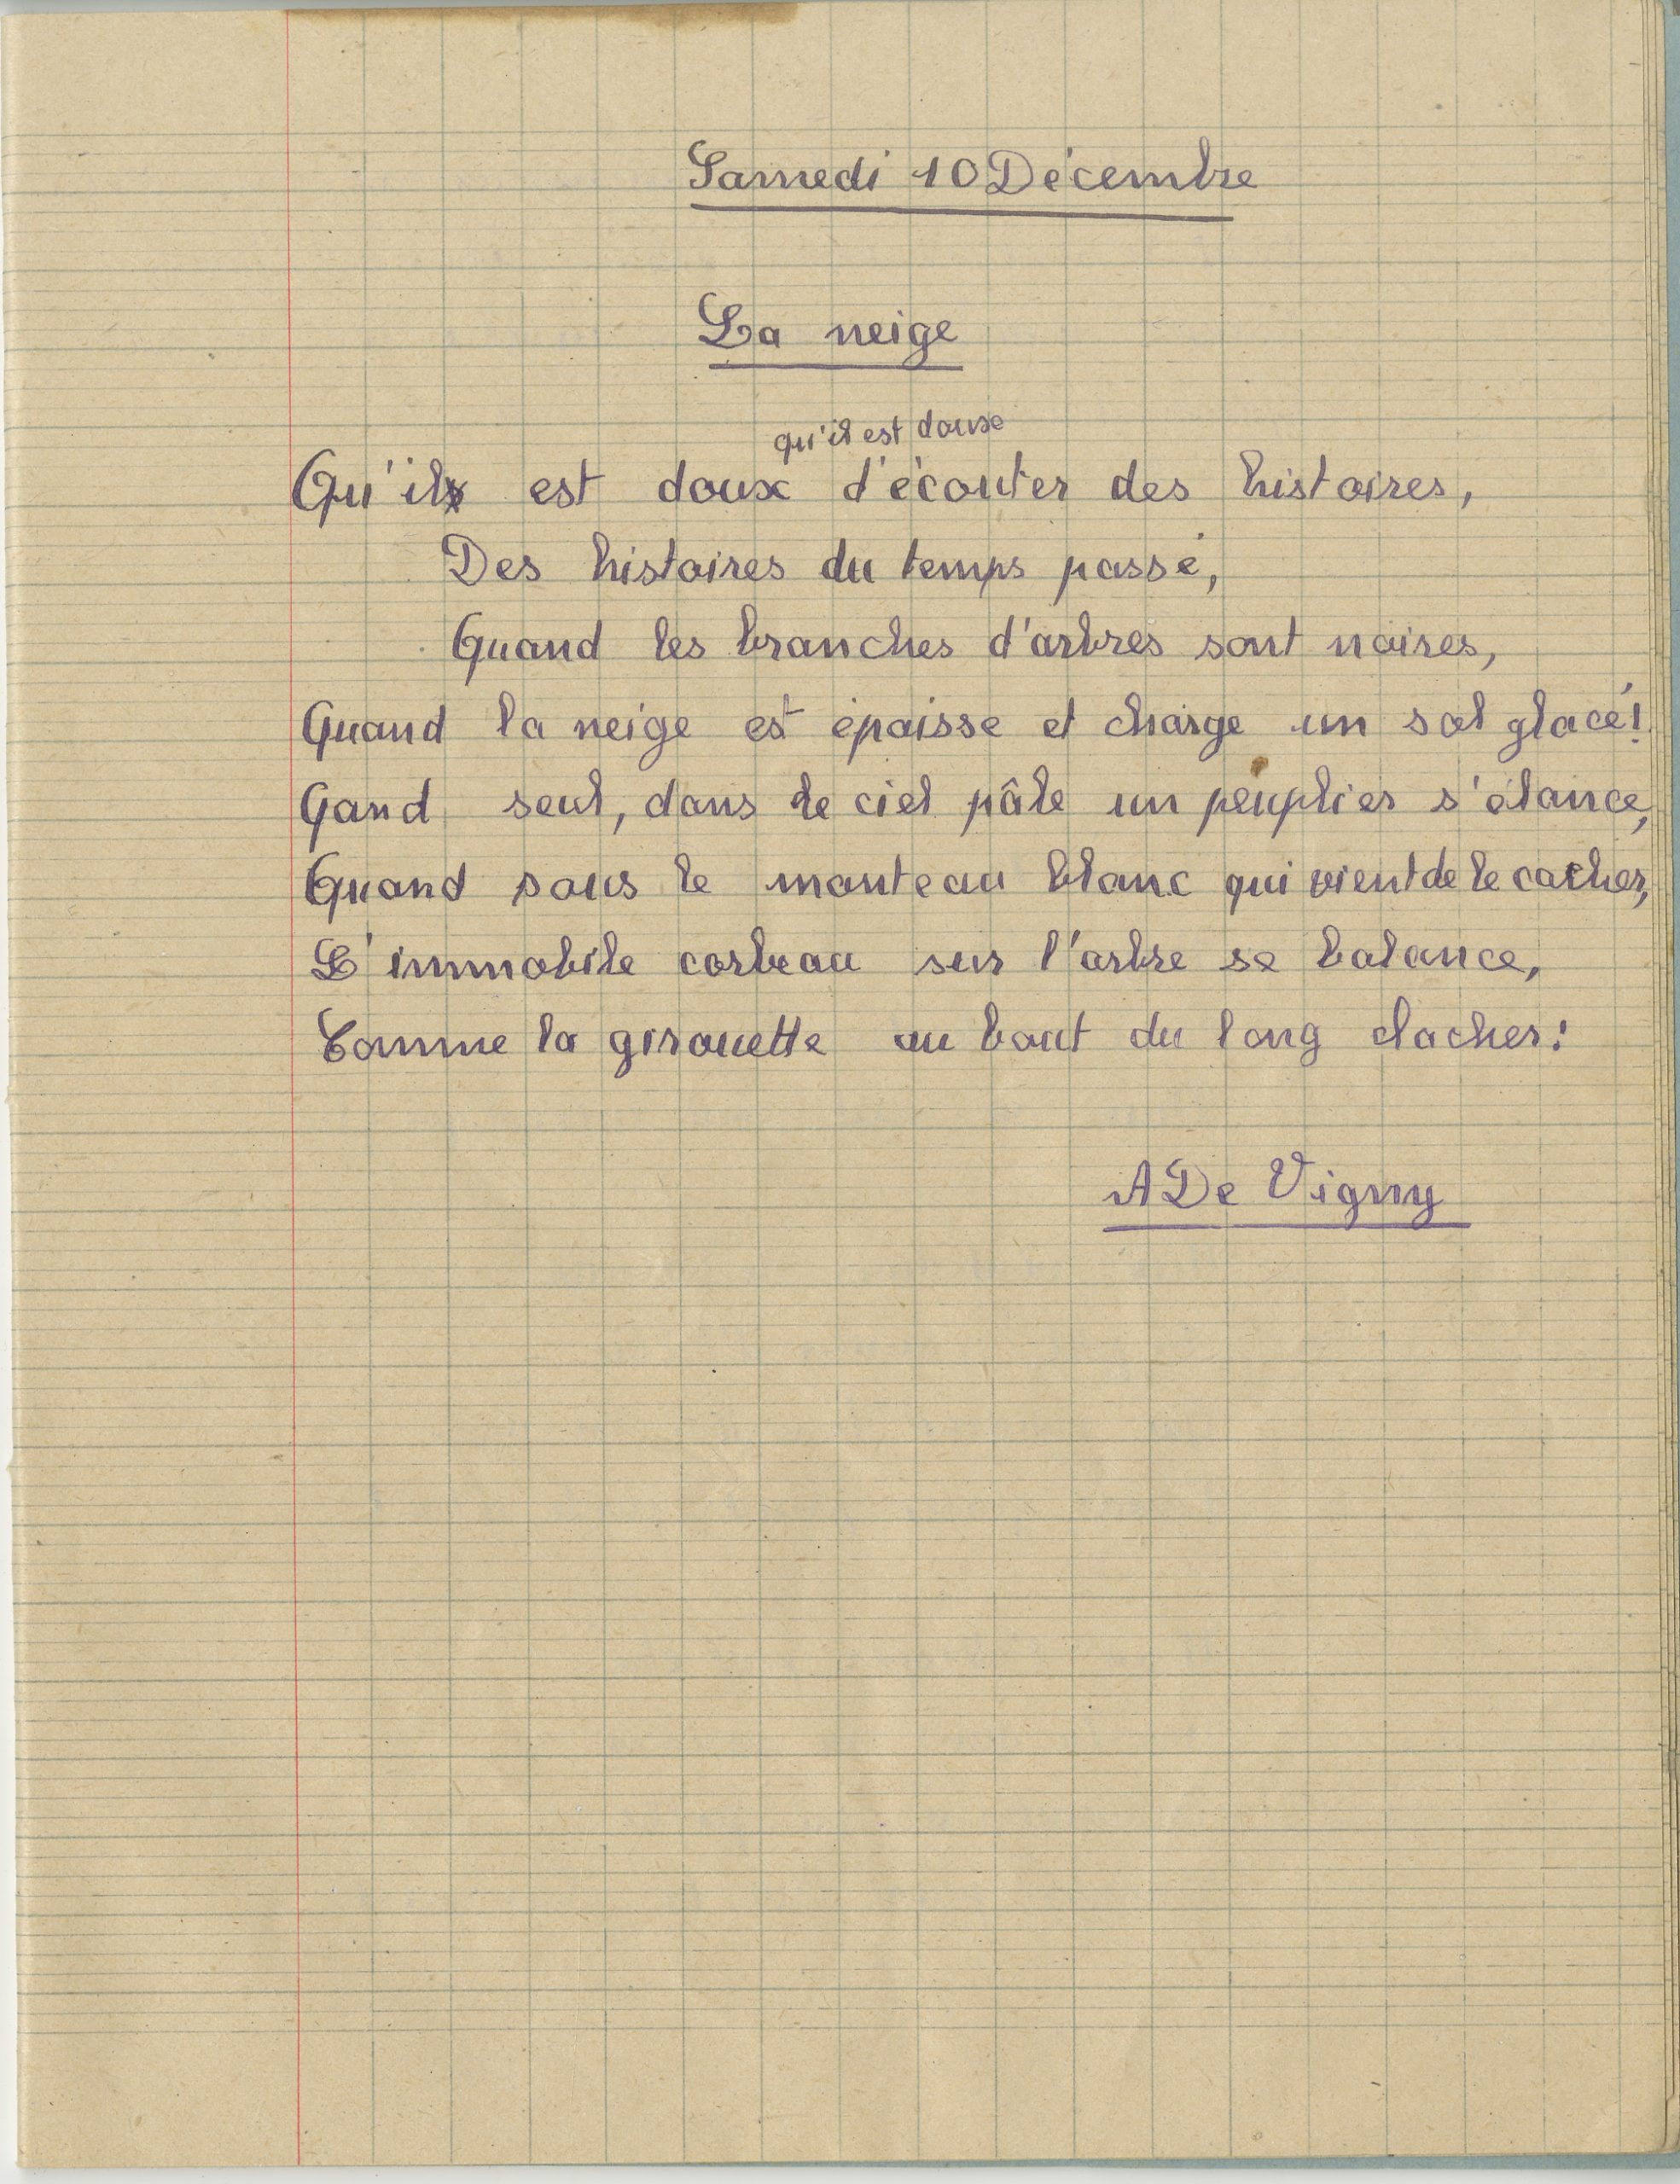 Samedi 10 Décembre
La neige
qu'il est doux
Qu'il est doux d'écouter des histoires,
Des histoires du temps passé,
Quand les branches d'arbres sont noires,
Quand la neige est épaisse et charge un sol glacé!
Gand seul, dans le ciel pâle un peuplier s'élance,
Quand sous le manteau blanc qui vient de le cacher,
L'immobile corbeau sur l'arbre se balance,
Comme la girouette au bout du long clocher!
A De Vigny